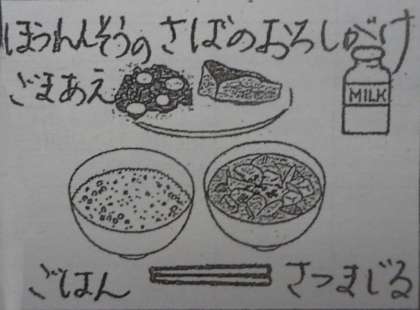 ほうれんそうの
ごまあえ
さばのおろしがけ
MILK
ごはん
さつまじる